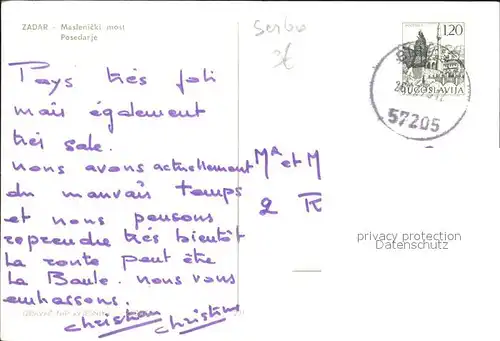 ZADAR - Maslenički most
Posedarje
Serbo
3€
1,20
JUGOSLAVIJA
57205
Pays très joli
mais également
très sale.
nous avons actuellement
du mauvais temps
et nous pensons
reprendre très bientôt
la route peut être
La Baule. nous vous
embrassons.
christian
christine
Mᴬ et M
2 R
privacy protection
Datenschutz